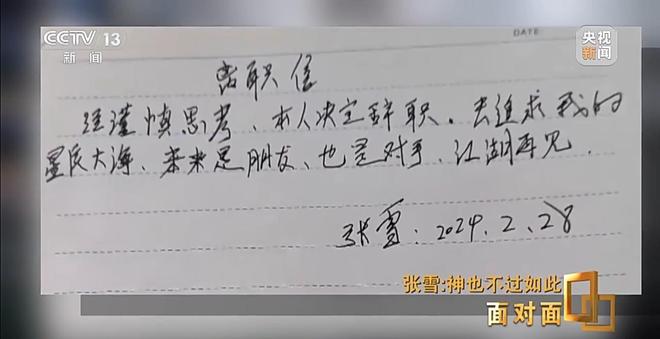 CCTV 13
新闻
DATE:
央视
新闻
离职信
经谨慎思考、本人决定辞职。去追求我的
星辰大海、未来是朋友、也是对手、江湖再见.
张雪: 2024.2.28
张雪:神也不过如此
面对面